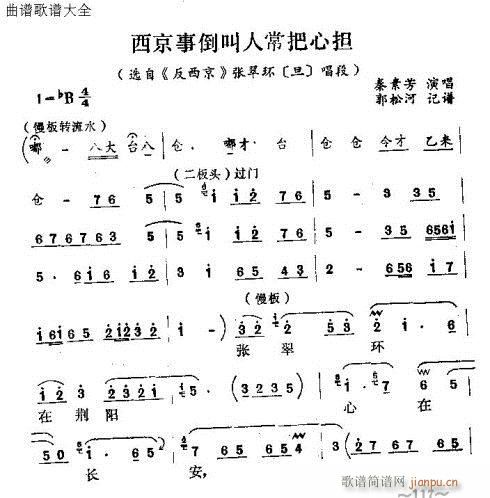 曲谱歌谱大全
西京事倒叫人常把心担
(选自《反西京》张翠环〔旦〕唱段)
1=♭B 4/4
秦素芳 演唱
郭松河 记谱
(慢板转流水)
(嘟 - 八大 台八 仓. 嘟才 台 仓 仓 令才 乙来
(二板头)过门
仓 - 7 6 5 5 i i 2 5 - 3 3 5
6 7 6 7 6 3 5 i i 2 3 2 6 5 6 5 6 i
5. 6 i 6 i 2 3 i 6 5 4 3 2 - 6 5 6 i 7
(慢板)
i 6 i 6 5 2 i 2 3 2 5 - i) 3 2 2 5 3 2 - i 2
张 翠 环
i 2 3 (2 3 2 i 2) i 5. (3 2 3 5) i. 7 6 5
在 荆 阳 心 在
5 0 i. 6 5 7 6 5 6 5 4 (3 2 5 7 6 5 6
长 安,
歌谱简谱网
jianpu.cn
~117~